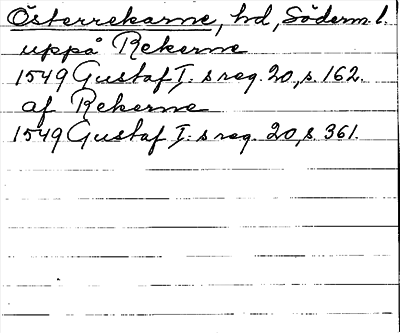 Österrekarne, hd, Söderm. l.
uppå Rekerne
1549 Gustaf I:s reg. 20, s. 162.
af Rekerne
1549 Gustaf I:s reg. 20, s. 361.